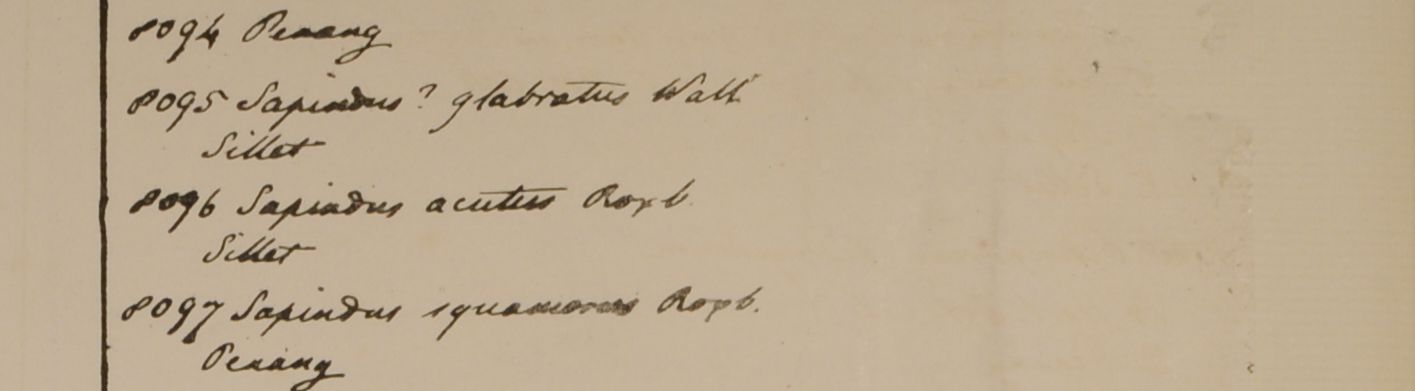 8094 Penang
8095 Sapindus? glabratus Wall
Sillet
8096 Sapindus acutus Roxb.
Sillet
8097 Sapindus squamosus Roxb.
Penang